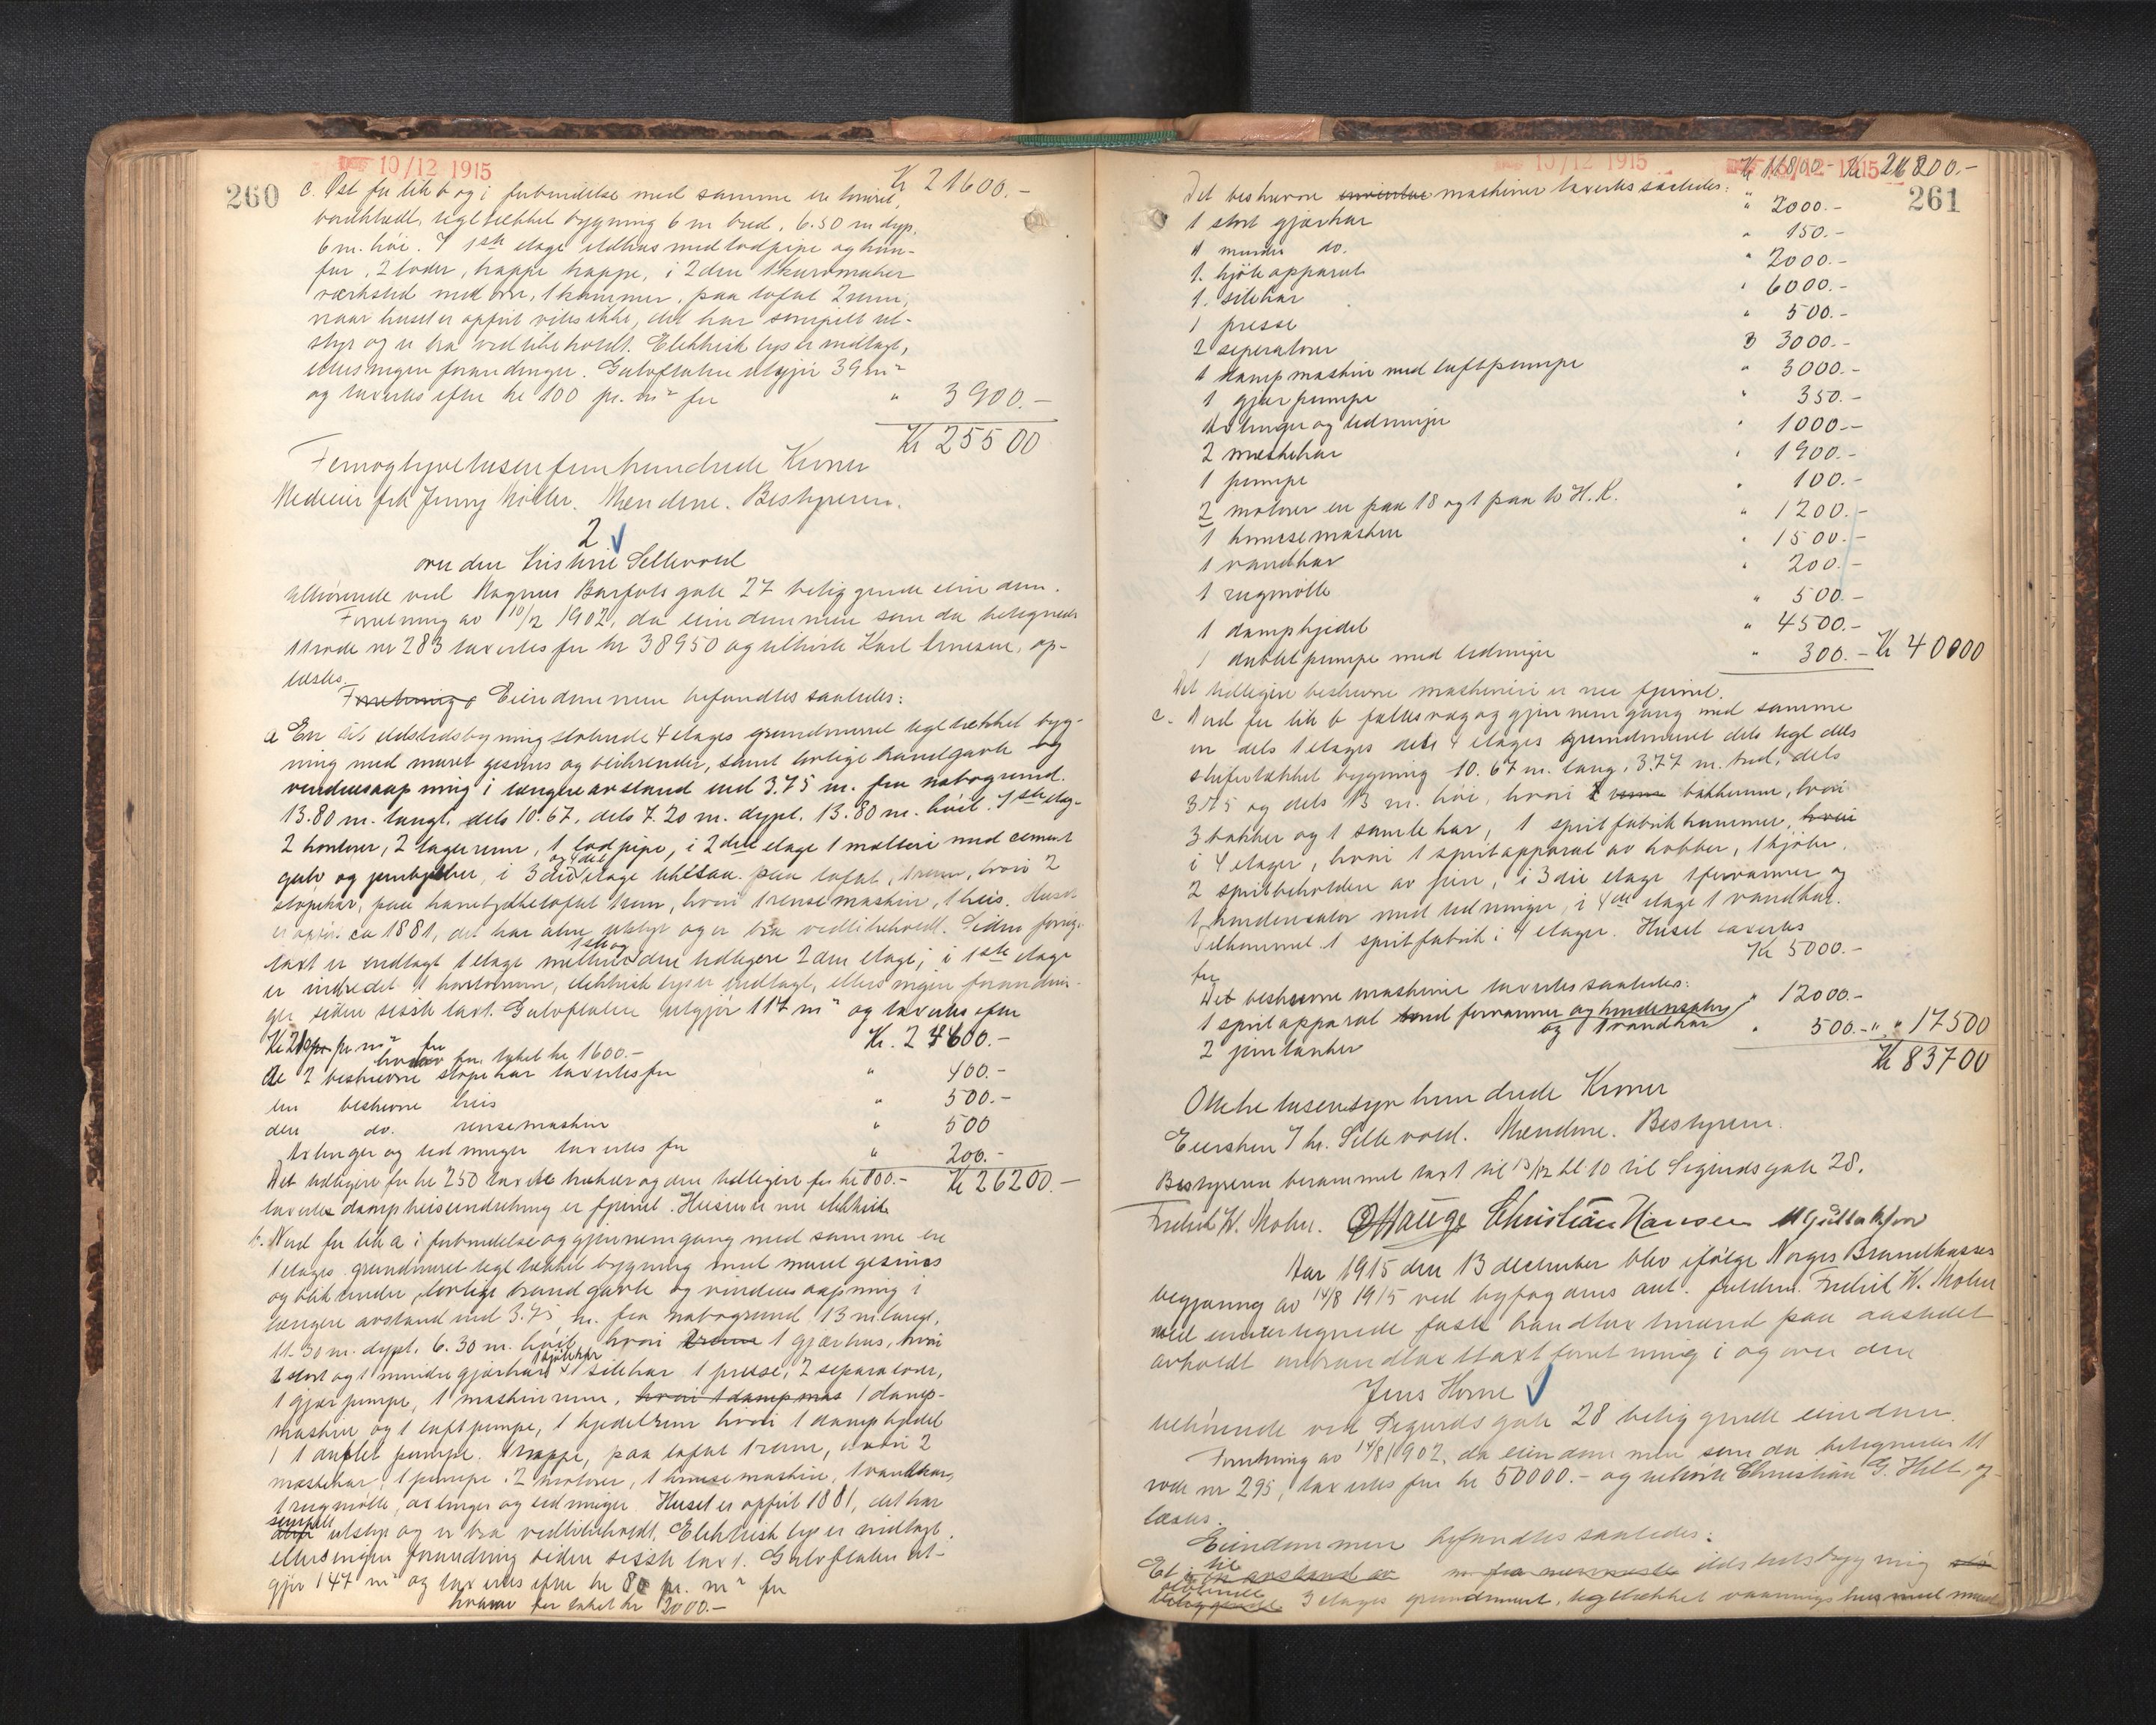 10/12 1915
260
c. Øst for lit b og i forbindelse med samme en tømret, Kr 21600.-
bordklædt, teglsækket bygning 6 m bred, 6.50 m dyp,
6 m. høi. I 1ste etage ildhus med lodpipe og kom-
fur, 2 boder, trappe, i 2den 1 kurvmaker
verksted med ovn, 1 kammer, paa loftet 2 rum,
naar huset er opført vites ikke, det har simpelt ut-
styr og er bra vedlikeholdt. Elektrisk lys er indlagt,
ellers ingen forandringer. Gulvflaten utgjør 39 m²
og taxertes efter kr 100 pr. m² for " 3900.-
Kr 25500
Femogtyvetusenfemhundrede Kroner
Medeier frk Jenny Møller. Mændene. Bestyreren.
2
over den Kristine Sellevold
tilhørende ved Magnus Barfots gate 27 beliggende eiendom.
Forretning av 10/2 1902, da eiendommen som da betegnedes
11 rode nr 283 taxertes for kr 38950 og tilhørte Karl Arnesen, op-
læstes.
Forretning Eiendommen befandtes saaledes:
a En til ildstedsbygning støtende 4 etages grundmuret teglsækket byg-
ning med muret gesims og blikrender, samt lovlige brandgavle og
vinduesaapning i længere avstand end 3.75 m. fra nabogrund.
13.80 m. langt, dels 10.67, dels 7.20 m. dypt, 13.80 m. høit. I 1ste etag-
2 kontorer, 2 lagerrum, 1 lodpipe, i 2den etage 1 malteri med cement
gulv og jernbjelker, i 3die og 4de etage likesaa. paa loftet, 1 rum, hvori 2
støpekar, paa hanebjelkeloftet 1 rum, hvori 1 rensemaskin, 1 heis. Huset
er opført ca 1881, det har alm. utstyr og er bra vedlikeholdt. Siden forrige
taxt er indlagt 1 etage mellem 1ste og den tidligere 2den etage, i 1ste etage
er indredet 1 kontorrum, elektrisk lys er indlagt, ellers ingen forandrin-
ger siden sidste taxt. Gulvflaten utgjør 117 m² og taxertes efter
Kr 210 pr m² for Kr. 24600.-
hvorav for taket kr 1600.-
de 2 beskrevne støpekar taxertes for " 400.-
den beskrevne heis " 500.-
den do. rensemaskin " 500
Axlinger og ledninger taxertes for " 200.-
Det tidligere for kr 250 taxerte trækar og den tidligere for kr 800.- Kr 26200.-
taxerte dampheiseindretning er fjernet. Heisen er nu elektrisk
b. Nord for lit a i forbindelse og gjennemgang med samme en
1 etages grundmuret teglsækket bygning med muret gesims
og blikrender, lovlige brandgavle og vinduesaapning i
længere avstand end 3.75 m. fra nabogrund 13 m langt,
11.30 m. dypt, 6.30 m. høit, hvori 2 rum 1 gjærhus, hvori
1 stort og 1 mindre gjærkar, 1 kjølekar, 1 silekar 1 presse, 2 separatorer,
1 gjærpumpe, 1 maskinrum, hvori 1 dampmas 1 damp-
maskin og 1 luftpumpe, 1 kjedelrum hvori 1 dampkjedel
1 dublet pumpe. 1 trappe, paa loftet 1 rum, hvori 2
mæskekar, 1 pumpe. 2 motorer, 1 knusemaskin, 1 vandkar,
1 rugmølle, axlinger og ledninger. Huset er opført 1881, det har
simpelt utstyr og er bra vedlikeholdt. Elektrisk lys er indlagt.
ellers ingen forandring siden sidste taxt. Gulvflaten ut-
gjør 147 m² og taxertes efter kr 80 pr. m² for
hvorav for taket kr 2000.-
10/12 1915 Kr 11800.- 10/12 1915 Kr 26200.-
261
Det beskrevne inventar maskineri taxertes saaledes:
1 stort gjærkar " 2000.-
1 mindre do. " 150.-
1 kjøleapparat " 2000.-
1 silekar " 6000.-
1 presse " 500.-
2 seperatorer " 3000.-
1 dampmaskin med luftpumpe " 3000.-
1 gjærpumpe " 350.-
Axlinger og ledninger " 1000.-
2 mæskekar " 1900.-
1 pumpe " 100.-
2 motorer en paa 18 og 1 paa 10 H.K. " 1200.-
1 knusemaskin " 1500.-
1 vandkar " 200.-
1 rugmølle " 500.-
1 dampkjedel " 4500.-
1 dublet pumpe med ledninger " 300.- Kr 40000
Det tidligere beskrevne maskineri er nu fjernet.
c. Nord for lit b fællesvæg og gjennemgang med samme
en dels 1 etages dels 4 etages grundmuret dels tegl dels
skifertækket bygning 10.67 m. lang, 3.77 m. bred, dels
3.75 og dels 13 m. høi, hvori 1 bakkerum, hvori
3 bakker og 1 samlekar, 1 spritfabrik kammer, hvori
i 4 etager, hvori 1 spritapparat av kobber, 1 kjøler.
2 spritbeholdere av jern, i 3die etage 1 forvarmer og
1 kondensator med ledninger, i 4de etage 1 vandkar.
Tilkommet 1 spritfabrik i 4 etager. Huset taxertes
for Kr 5000.-
Det beskrevne maskineri taxertes saaledes:
1 spritapparat med forvarmer og kondensator og 1 vandkar " 12000.-
2 jerntanker " 500.- " " 17500
Kr 83700
Ottitretusensyvhundrede Kroner
Eiersken I hr. Sellevold. Mændene. Bestyreren.
Bestyreren berammet taxt til 13/12 kl 10 til Sigurdsgate 28.
Fredrik W. Mohn. O Hauge Christian Hansen
Aar 1915 den 13 december blev ifølge Norges Brandkasses
begjæring av 14/8 1915 ved byfogdens aut. fuldm. Fredrik W. Mohn
med undertegnede faste brandtaxtmænd paa aastedet
avholdt ombrandtaxttaxtforretning i og over den
Jens Horne
tilhørende ved Sigurdsgate 28 beliggende eiendom.
Forretning av 14/8 1902, da eiendommen som da betegnedes 11
rode nr 295, taxertes for kr 50000.- og tilhørte Christian G. Hill, op-
læstes.
Eiendommen befandtes saaledes:
Et til ildstedsbygning
støtende 3 etages grundmuret, teglsækket vaaningshus med muret